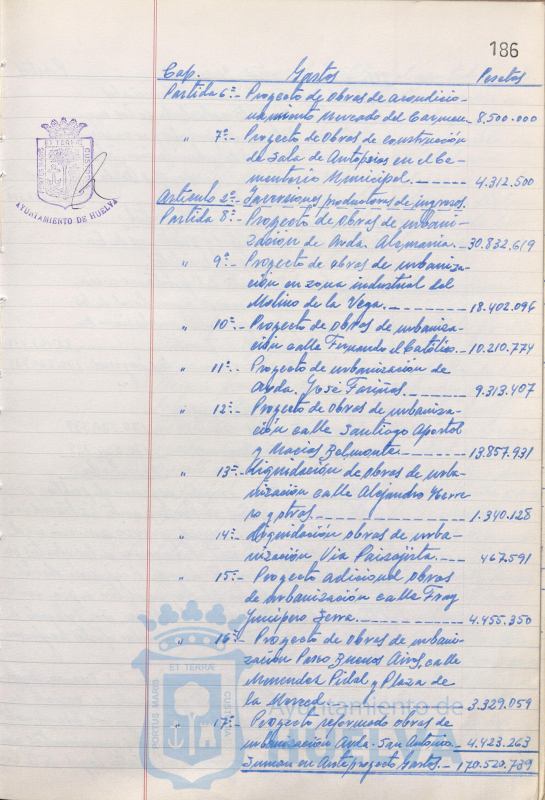 186
Cap. Gastos Pesetas
Partida 6ª- Proyecto de obras de acondicio-
namiento Mercado del Carmen- 8.500.000
" 7ª- Proyecto de obras de construcción
de Sala de Autopsias en el Ce-
menterio Municipal. - - - - - 4.312.500
Artículo 2º- Inversiones productoras de ingresos.
Partida 8ª- Proyecto de obras de urbani-
zación de Avda. Alemania. - 30.832.619
" 9ª- Proyecto de obras de urbaniza-
ción en zona industrial del
Molino de la Vega. - - - - - 18.402.096
" 10ª- Proyecto de obras de urbaniza-
ción calle Fernando el Católico. - 10.210.774
" 11ª- Proyecto de urbanización de
Avda. José Fariñas. - - - - 9.313.407
" 12ª- Proyecto de obras de urbaniza-
ción calle Santiago Apostol
y Macias Belmonte. - - - - 13.857.931
" 13ª- Liquidación de obras de urba-
nización calle Alejandro Herre
ro y otras. - - - - - - - - 1.340.128
" 14ª- Liquidación obras de urba-
nización Via Paisajista. - - - - 467.591
" 15ª- Proyecto adicional obras
de urbanización calle Fray
Junipero Serra. - - - - - - 4.455.350
" 16ª- Proyecto de obras de urbani-
zación Paseo Buenos Aires, calle
Menendez Pidal y Plaza de
la Merced - - - - - - - - 3.329.059
" 17ª- Proyecto reformado obras de
urbanización Avda. San Antonio. - 4.423.263
Suman en Anteproyecto Gastos. - 170.520.789
PORTUS MARIS ET TERRAE CUSTODIA
AYUNTAMIENTO DE HUELVA
PORTUS MARIS ET TERRÆ CUSTODIA
Ayuntamiento de
HUELVA